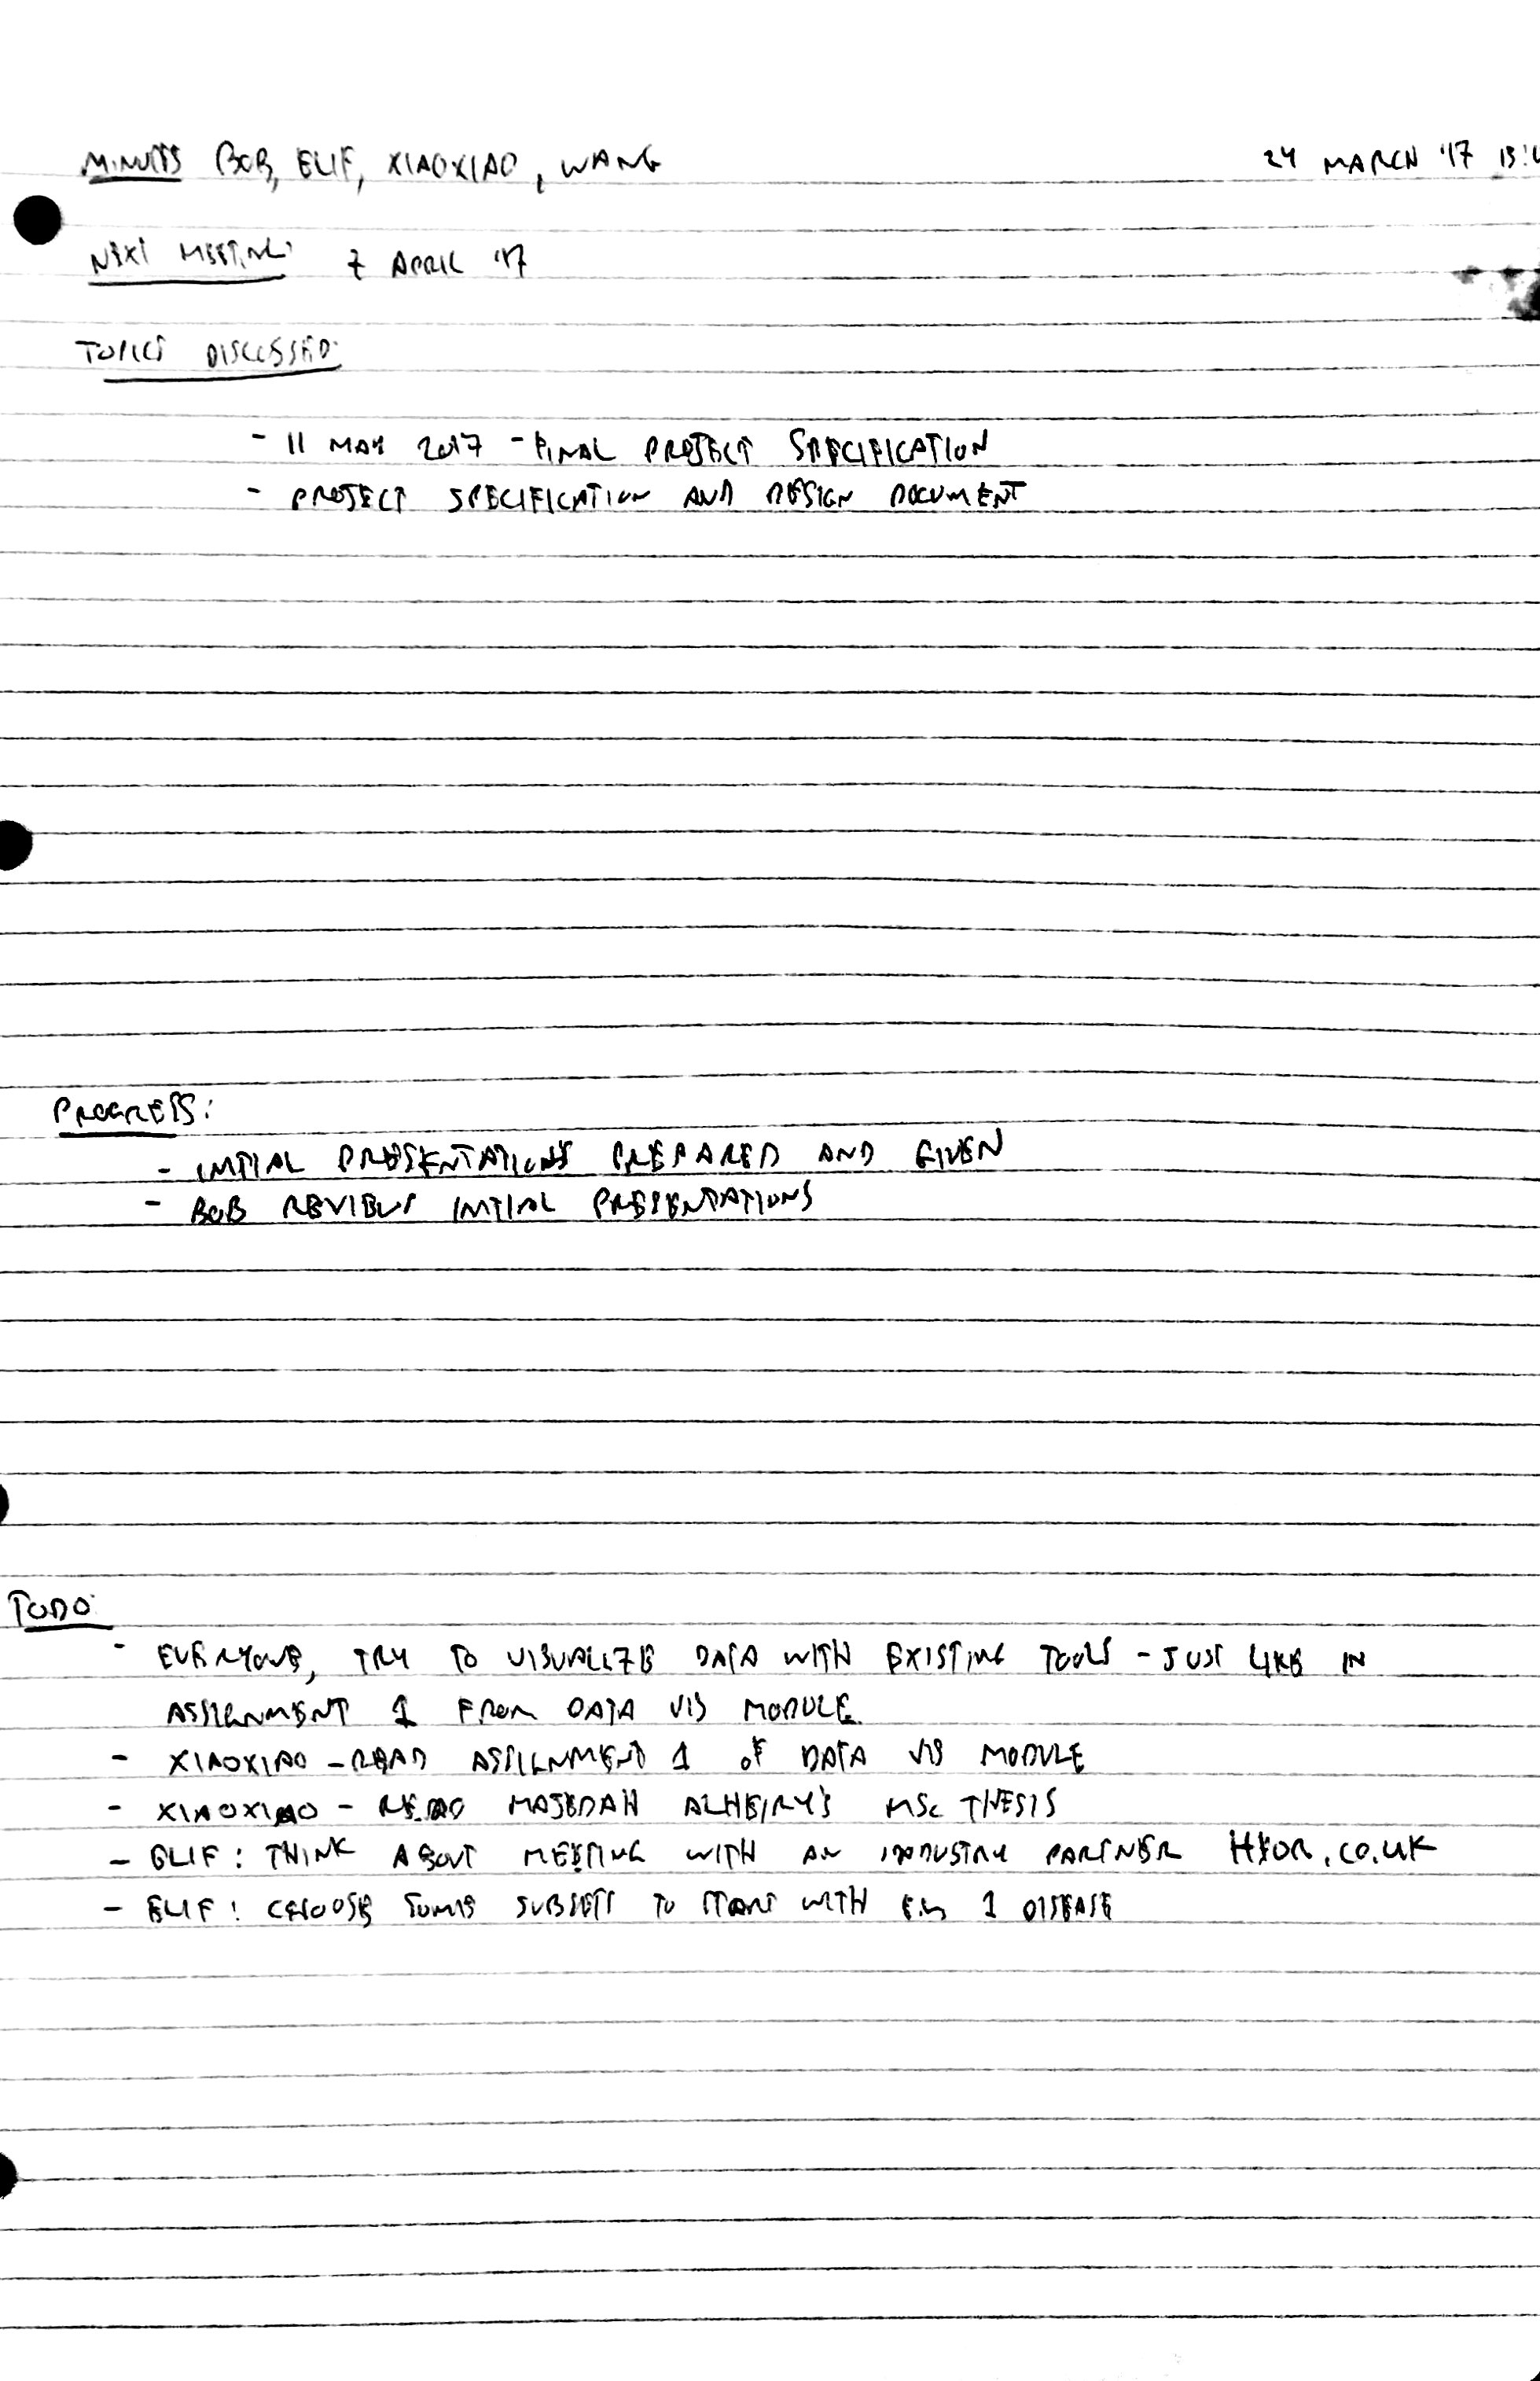 MINUTES BOB, ELIF, XIAOXIAO, WANG 24 MARCH '17
NEXT MEETING: 7 APRIL '17
TOPICS DISCUSSED:
- 11 MAY 2017 - FINAL PROJECT SPECIFICATION
- PROJECT SPECIFICATION AND DESIGN DOCUMENT
PROGRESS:
- INITIAL PRESENTATIONS PREPARED AND GIVEN
- BOB REVIEWS INITIAL PRESENTATIONS
TODO:
- EVERYONE, TRY TO VISUALIZE DATA WITH EXISTING TOOLS - JUST LIKE IN
ASSIGNMENT 1 FROM DATA VIS MODULE.
- XIAOXIAO - READ ASSIGNMENT 1 OF DATA VIS MODULE
- XIAOXIAO - READ MAJEDAH MSc THESIS
- ELIF: THINK ABOUT MEETING WITH AN INDUSTRY PARTNER
- ELIF: CHOOSE SOME SUBSETS TO START WITH E.G 1 DISEASE